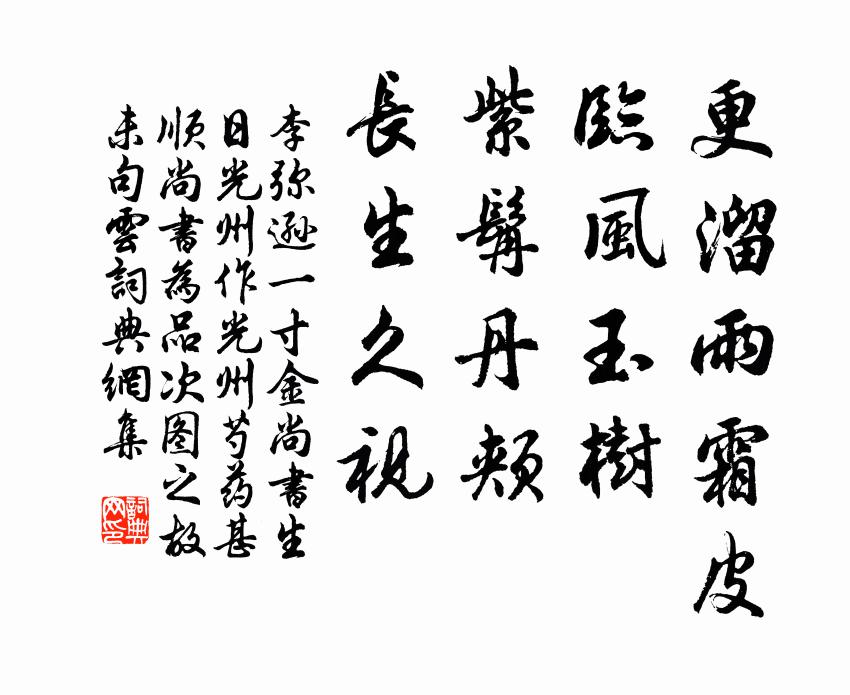 更溜雨霜皮
臨風玉樹
紫髯丹頰
長生久視
李弥遜一寸金尚書生
日光州作光州芍药甚
順尚書為品次图之故
末句雲詞典網集
詞典网印